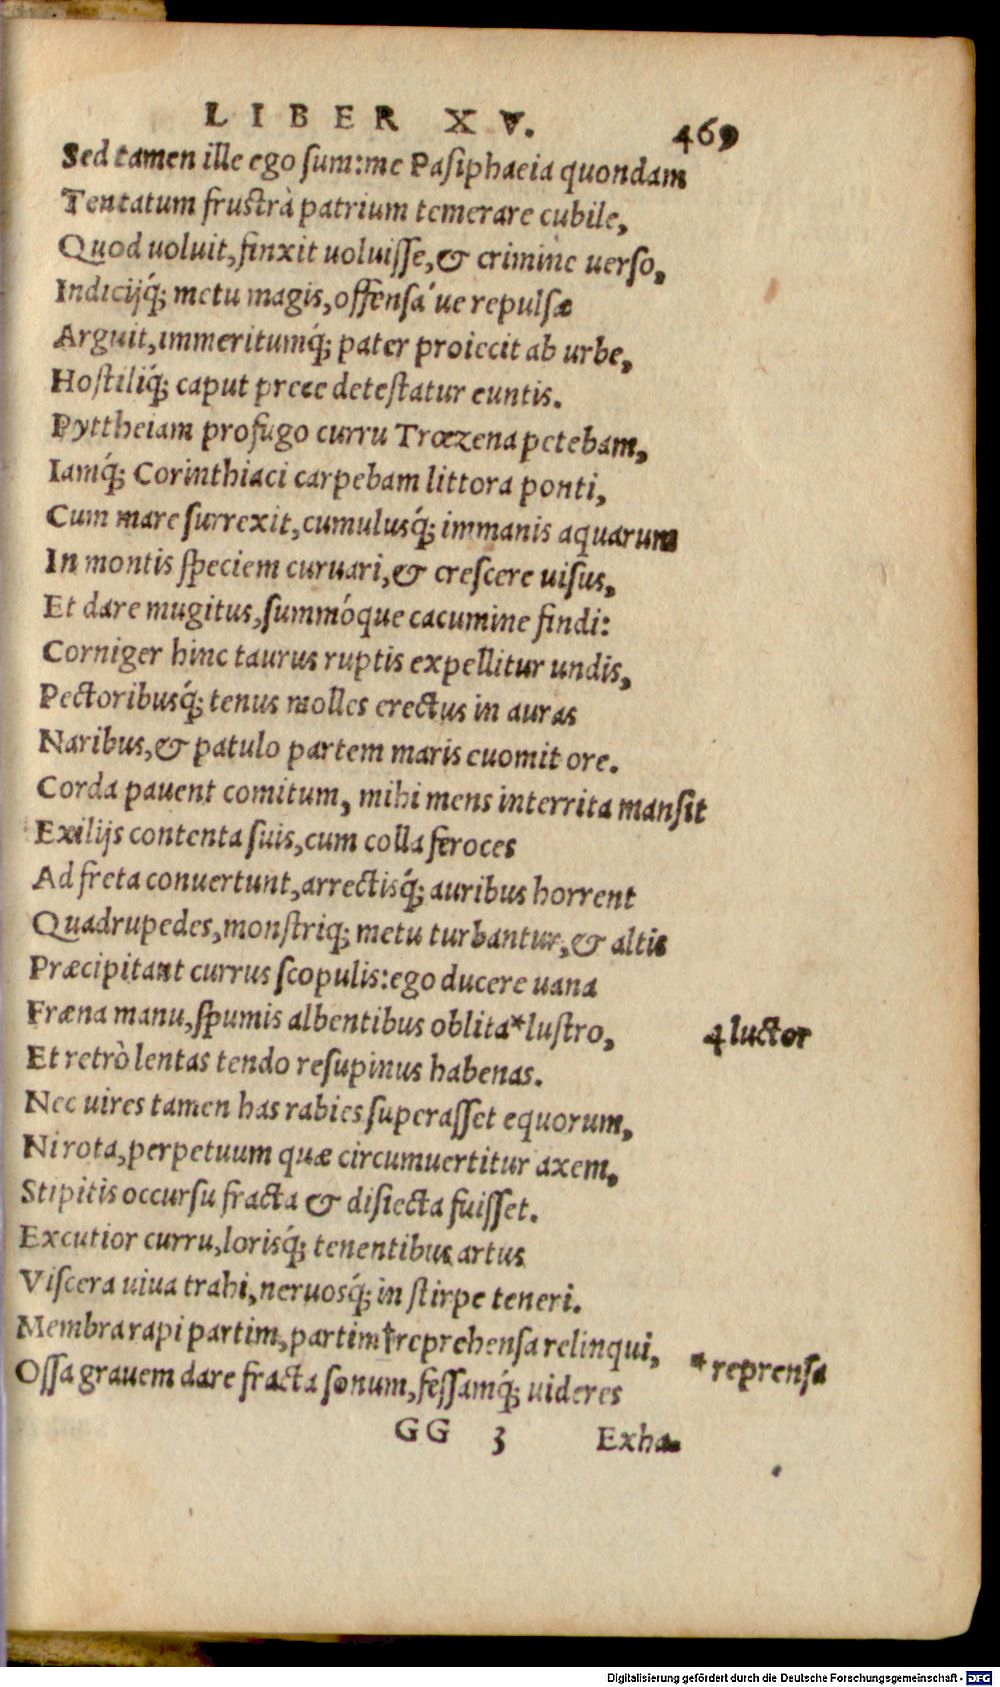 LIBER XV. 469
Sed tamen ille ego sum: me Pasiphaeia quondam
Tentatum frustrà patrium temerare cubile,
Quod uoluit, finxit uoluisse, & crimine uerso,
Indicijq́; metu magis, offensa'ue repulsæ
Arguit, immeritumq́; pater proiecit ab urbe,
Hostiliq́; caput prece detestatur euntis.
Pyttheiam profugo curru Trœzena petebam,
Iamq́; Corinthiaci carpebam littora ponti,
Cum mare surrexit, cumulusq́; immanis aquarum
In montis speciem curuari, & crescere uisus,
Et dare mugitus, summóque cacumine findi:
Corniger hinc taurus ruptis expellitur undis,
Pectoribusq́; tenus molles erectus in auras
Naribus, & patulo partem maris euomit ore.
Corda pauent comitum, mihi mens interrita mansit
Exilijs contenta suis, cum colla feroces
Ad freta conuertunt, arrectisq́; auribus horrent
Quadrupedes, monstriq; metu turbantur, & altis
Præcipitant currus scopulis: ego ducere uana
Fræna manu, spumis albentibus oblita* lustro, 4 luctor
Et retrò lentas tendo resupinus habenas.
Nec uires tamen has rabies superasset equorum,
Ni rota, perpetuum quæ circumuertitur axem,
Stipitis occursu fracta & disiecta fuisset.
Excutior curru, lorisq́; tenentibus artus
Viscera uiua trahi, neruosq́; in stirpe teneri.
Membra rapi partim, partim †reprehensa relinqui, * reprensa
Ossa grauem dare fracta sonum, fessamq́; uideres
GG 3 Exha-
Digitalisierung gefördert durch die Deutsche Forschungsgemeinschaft - DFG